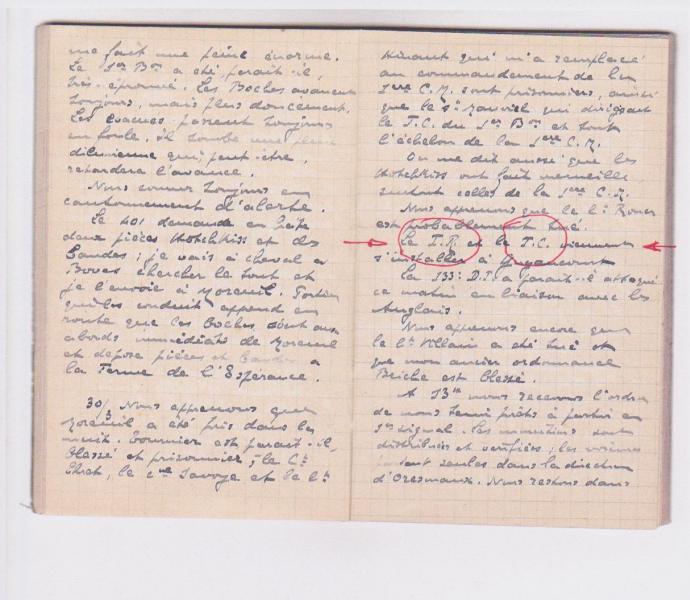 me fait une peine énorme.
Le 1er Bon a été, paraît-il,
très éprouvé. Les Boches avancent
toujours, mais plus doucement.
Les évacués passent toujours
en foule. Il tombe une pluie
diluvienne qui, peut-être,
retardera l'avance.
Nous sommes toujours en
cantonnement d'alerte.
Le 401 demande en hâte
deux pièces Hotchkiss et des
bandes ; je vais à cheval à
Boves chercher le tout et
je l'envoie à Moreuil. Fortier
qui les conduit apprend en
route que les Boches sont aux
abords immédiats de Moreuil
et dépose pièces et bandes à
la Ferme de l'Espérance.
30/3 Nous apprenons que
Moreuil a été pris dans la
nuit. Fournier est paraît-il,
blessé et prisonnier ; le Ct
le Savoye et le Lt
qui m'a remplacé
au commandement de la
1ère C.M. sont prisonniers, ainsi
que le St qui dirigeait
le T.C. du 1er Bon et tout
l'échelon de la 1ère C.M.
On me dit aussi que les
Hotchkiss ont fait merveille
surtout celles de la 1ère C.M.
Nous apprenons que le Lt
est probablement tué.
Le T.R. et le T.C. viennent
s'installer à Guyencourt
La 133e D.I. a paraît-il attaqué
ce matin en liaison avec les
Anglais.
Nous apprenons encore que
le Lt Villain a été tué et
que mon ancien ordonnance
Beiche est blessé.
A 13h nous recevons l'ordre
de nous tenir prêts à partir au
1er signal. Les munitions sont
distribuées et vérifiées ; les voitures
sont seules dans la direction
d'Oresmaux. Nous restons dans